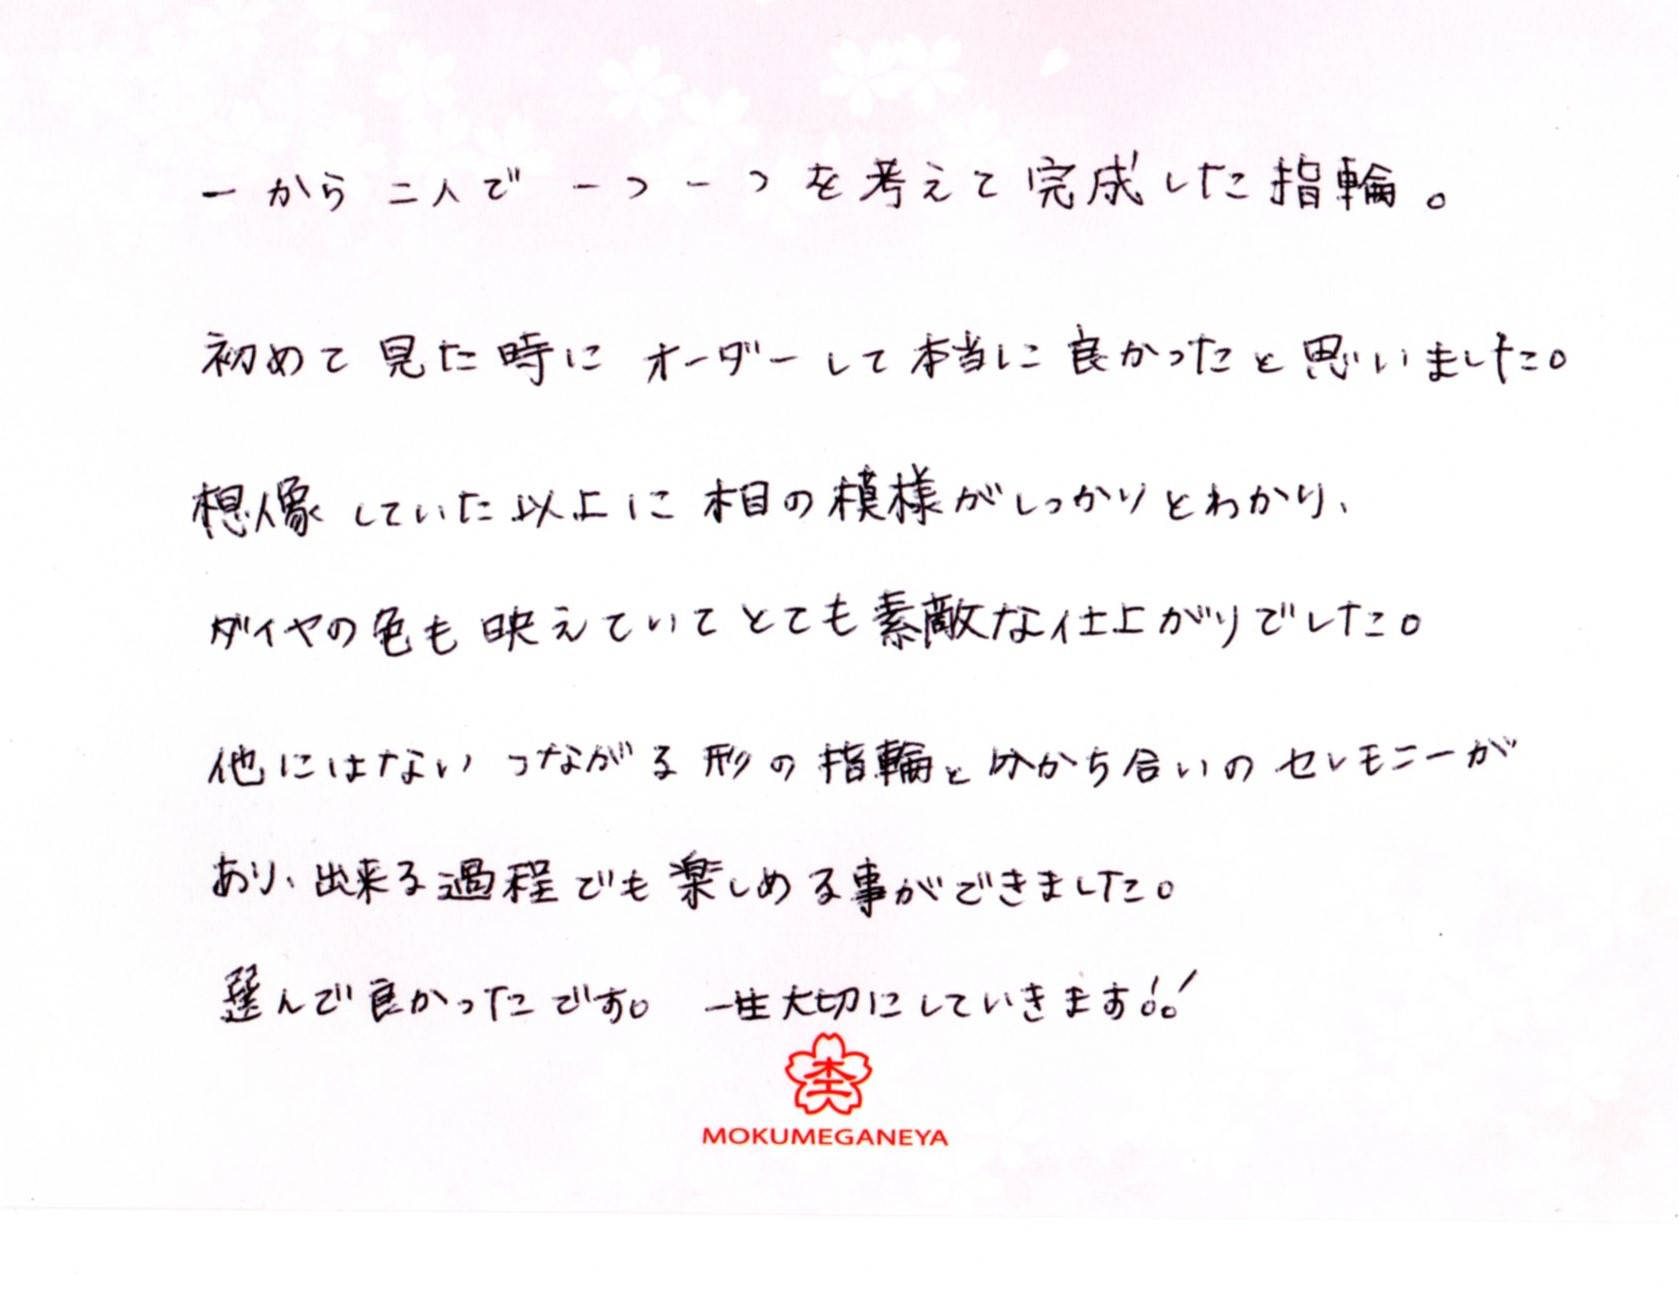 一から二人で一つ一つを考えて完成した指輪。
初めて見た時にオーダーして本当に良かったと思いました。
想像していた以上に木目の模様がしっかりとわかり、
ダイヤの色も映えていてとても素敵な仕上がりでした。
他にはないつながる形の指輪と分かち合いのセレモニーが
あり、出来る過程でも楽しめる事ができました。
選んで良かったです。 一生大切にしていきます!!
MOKUMEGANEYA